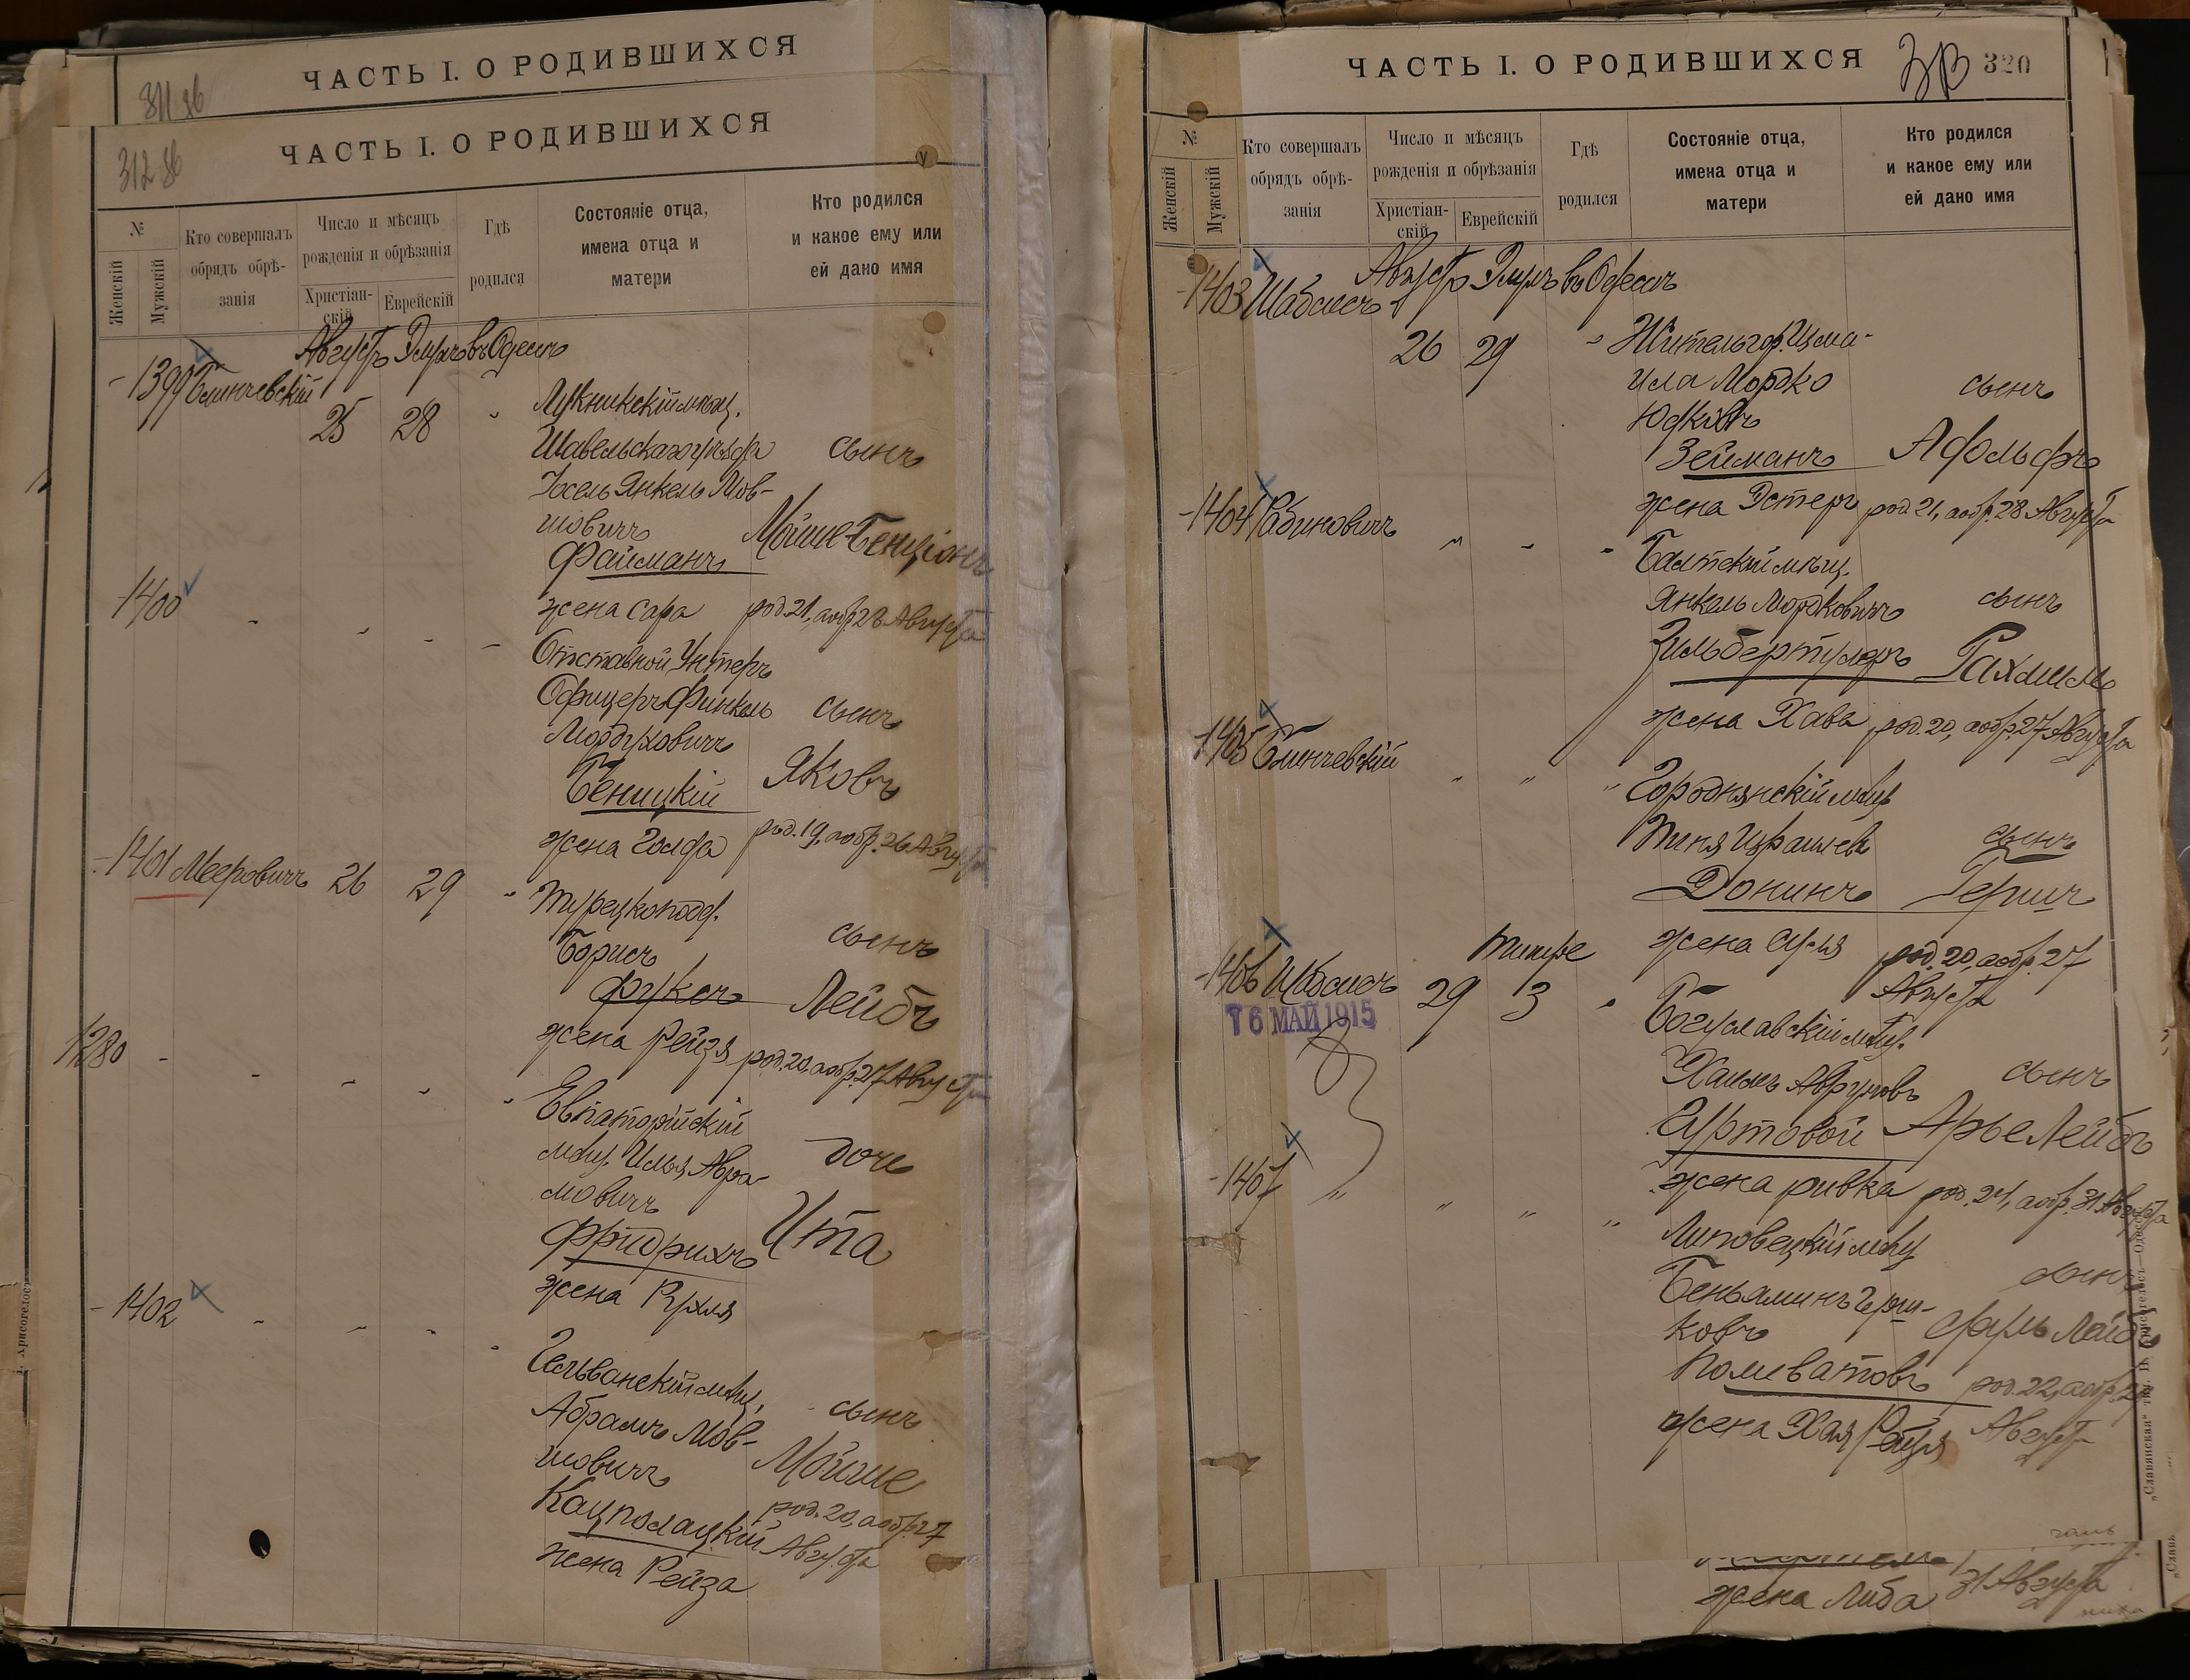 ЧАСТЬ I. О РОДИВШИХСЯ
ЧАСТЬ I. О РОДИВШИХСЯ
312
№
Женскій
Мужскій
Кто совершалъ
обрядъ обрѣ-
занія
Число и мѣсяцъ
рожденія и обрѣзанія
Христіан-
скій
Еврейскій
Гдѣ
родился
Состояніе отца,
имена отца и
матери
Кто родился
и какое ему или
ей дано имя
Августъ Элулъ въ Одессѣ
1399 Блинчевскій
25 28
Лукникскій мѣщ.
Шавельскаго уѣзда сынъ
Іосель Янкель Мов-
шовичъ Мойше-Бенціонъ
Файманъ
жена Сара род. 21, а обр. 28 Августа
1400
Отставной Унтеръ
Офицеръ Финкель сынъ
Мордуховичъ
Беницкій Яковъ
жена Голда род. 19, а обр. 26 Августа
1401 Мееровичъ 26 29 Турецкоподд.
Борисъ сынъ
Фуксъ Лейбъ
жена Рейзя род. 20, а обр. 27 Августа
1280
Евпаторійскій
мѣщ. Илья Авра- дочь
мовичъ
Фридрихъ Ита
жена Рухля
1402
Гельванскій мѣщ.
Абрамъ Мов- сынъ
шовичъ Мойше
Кацполацкій род. 20, а обр. 27
Августа
жена Рейза
ЧАСТЬ I. О РОДИВШИХСЯ
320
№
Женскій
Мужскій
Кто совершалъ
обрядъ обрѣ-
занія
Число и мѣсяцъ
рожденія и обрѣзанія
Христіан-
скій
Еврейскій
Гдѣ
родился
Состояніе отца,
имена отца и
матери
Кто родился
и какое ему или
ей дано имя
Августъ Элулъ въ Одессѣ
1403 Шабсисъ
26 29 Житель гор. Изма-
ила Мордко сынъ
Юдковъ
Зейманъ Адольфъ
жена Эстеръ род. 21, а обр. 28 Августа
1404 Рабиновичъ
Балтскій мѣщ.
Янкель Мордковичъ сынъ
Зильбертулеръ Рахмиль
жена Хава род. 20, а обр. 27 Августа
1405 Блинчевскій
Городнянскій мѣщ.
Пиня Израилевъ сынъ
Донинъ Гершъ
жена Суля род. 20, а обр. 27
Августа
Тишре
1406 Шабсисъ 29 3
16 МАЙ 1915
Богуславскій мѣщ.
Хаимъ Аврумовъ сынъ
Артовой Арье Лейбъ
жена Ривка род. 24, а обр. 31 Августа
1407
Липовецкій мѣщ.
Беньяминъ Герш- сынъ
ковъ Сруль Лейбъ
Поливатовъ род. 22, а обр. 29
жена Хая Рейзя Августа
жена Либа 31 Августа